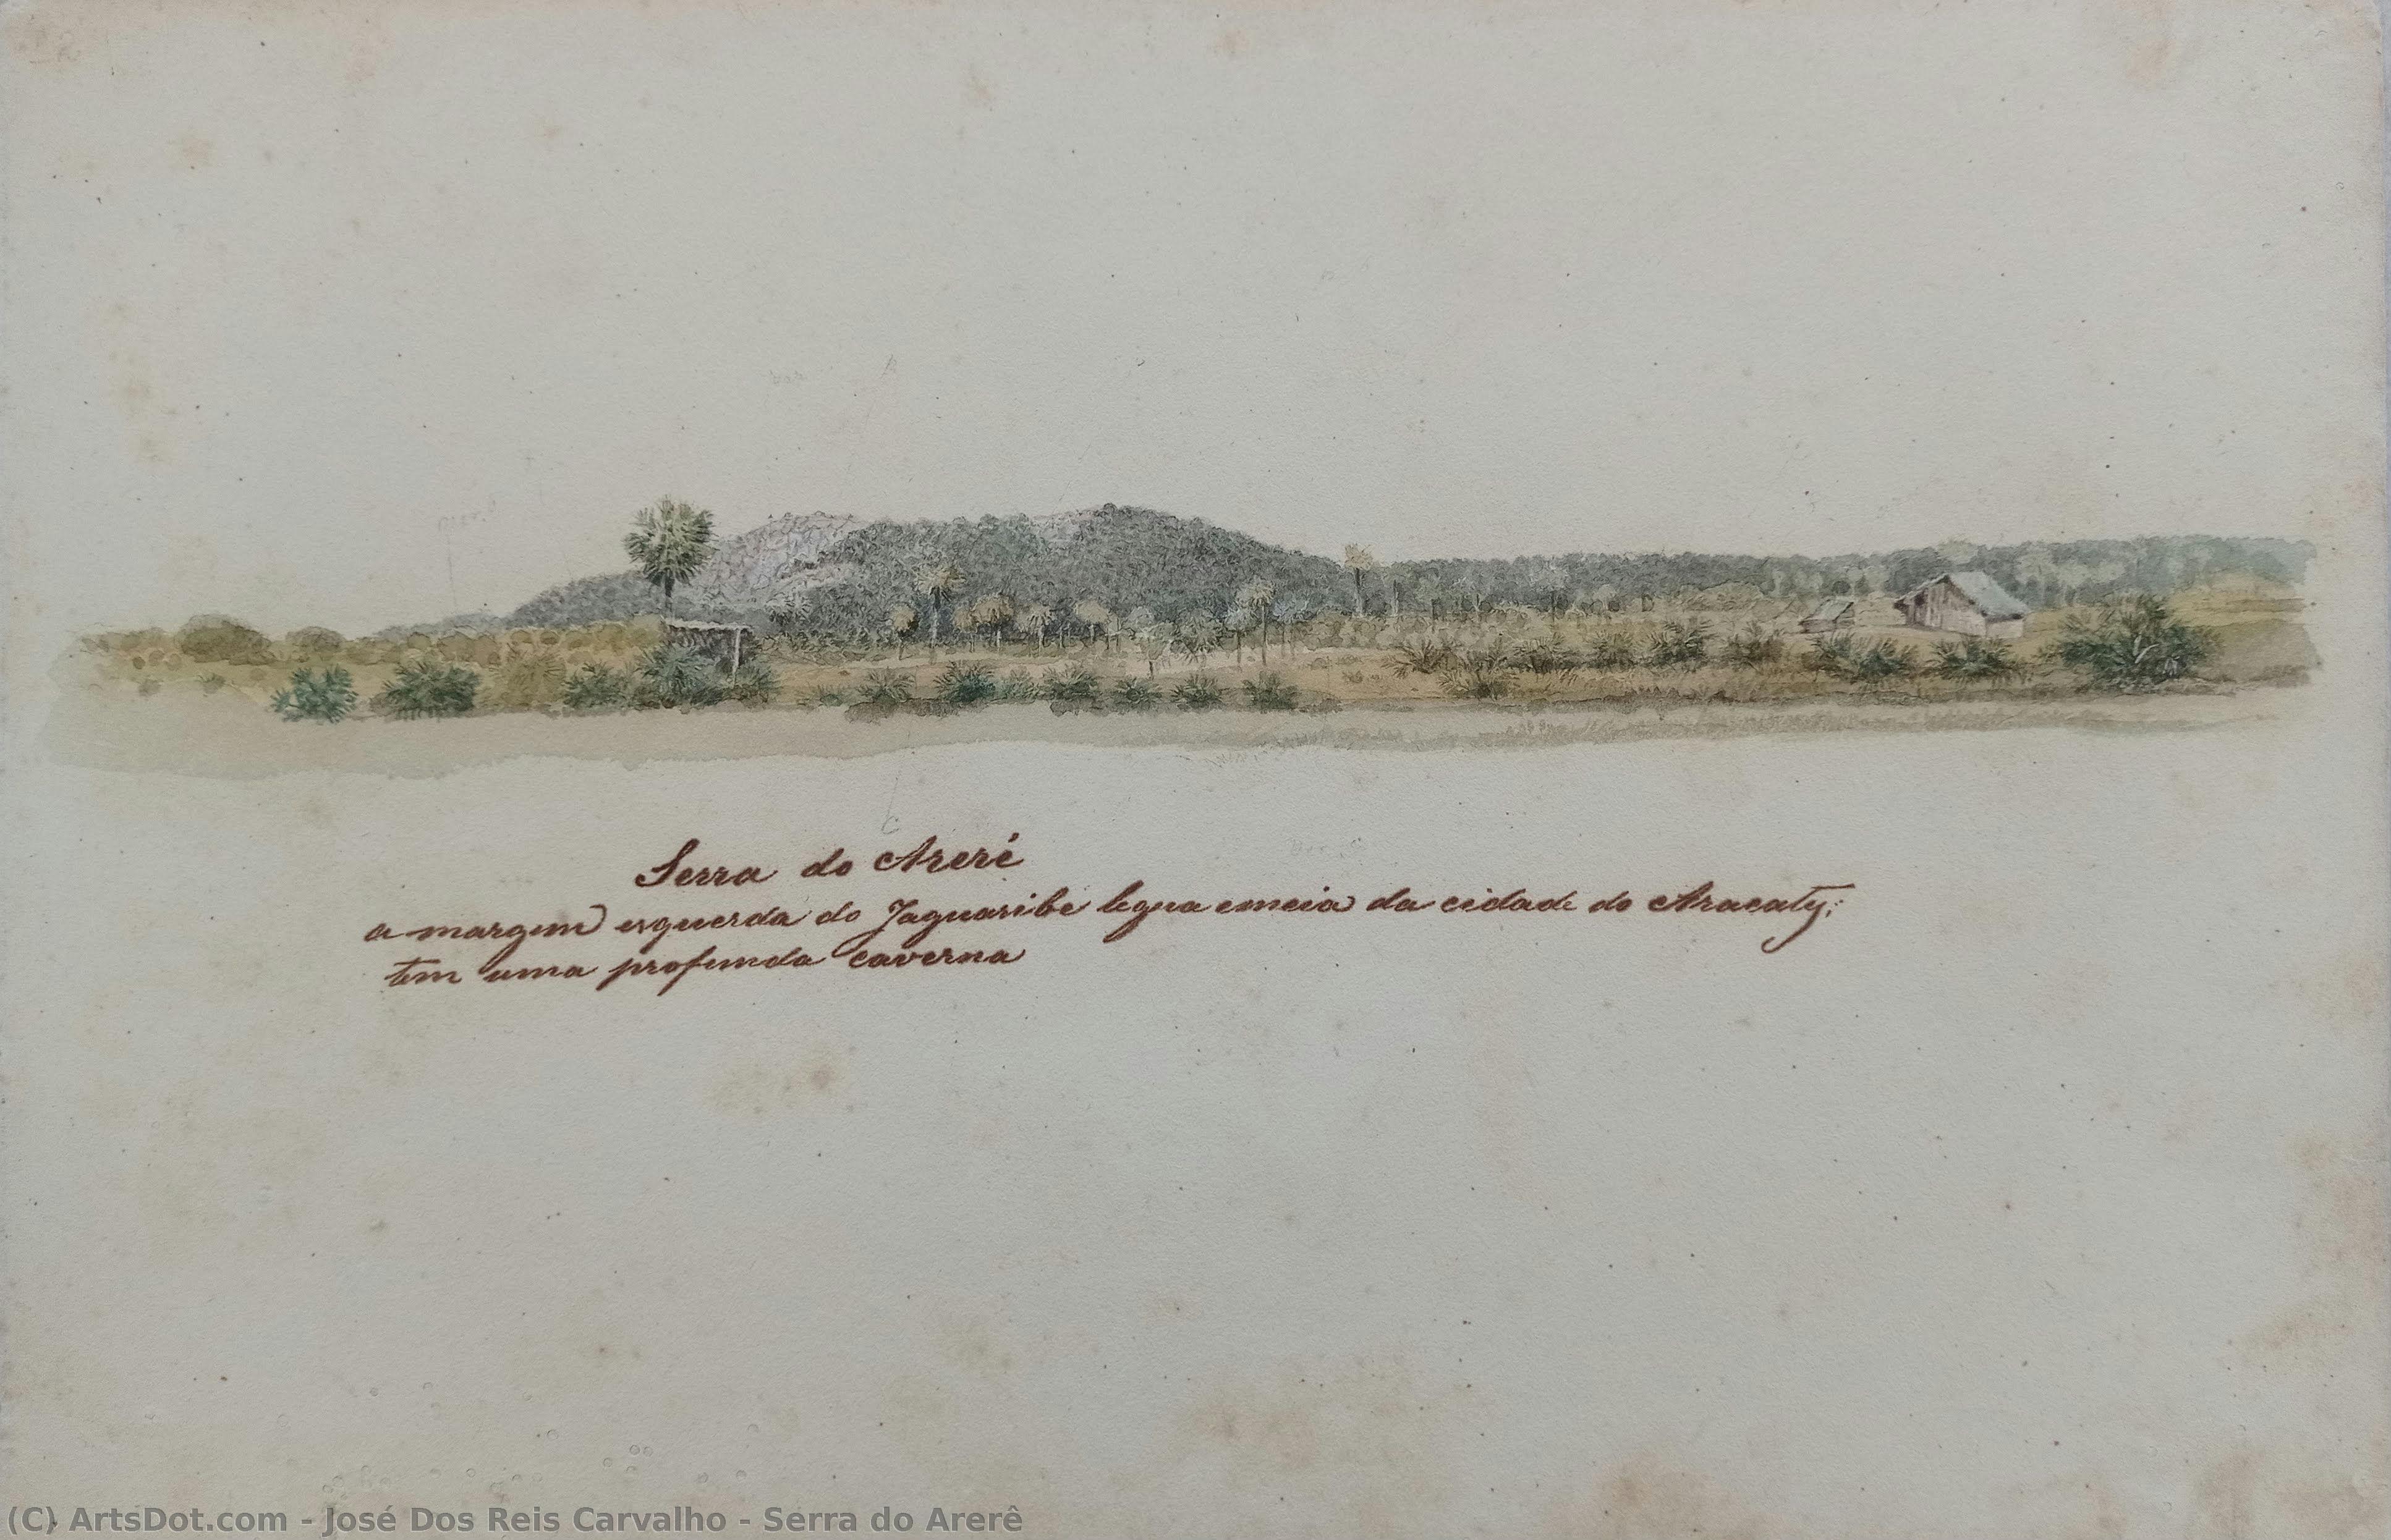 Serra do Areré
a margem esquerda do Jaguaribe legua emeia da cidade do Aracaty;
tem uma profunda caverna
(C) ArtsDot.com - José Dos Reis Carvalho - Serra do Arerê